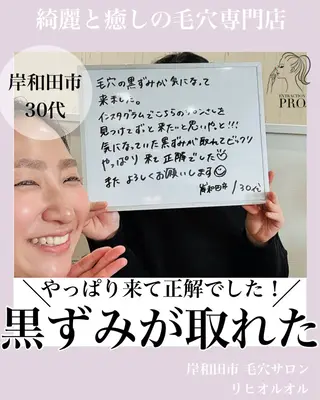 綺麗と癒しの毛穴専門店
岸和田市
30代
EXTRACTION
PRO.
毛穴の黒ずみが気になって
来ました。
インスタグラムでこちらのサロンさんを
見つけてずっと来たいと思い代と!!!
気になっていた黒ずみが取れてビックリ
やっぱり来て正解でした
またよろしくお願いします
岸和田市/30代
やっぱり来て正解でした!
黒ずみが取れた
岸和田市 毛穴サロン
リヒオルオル